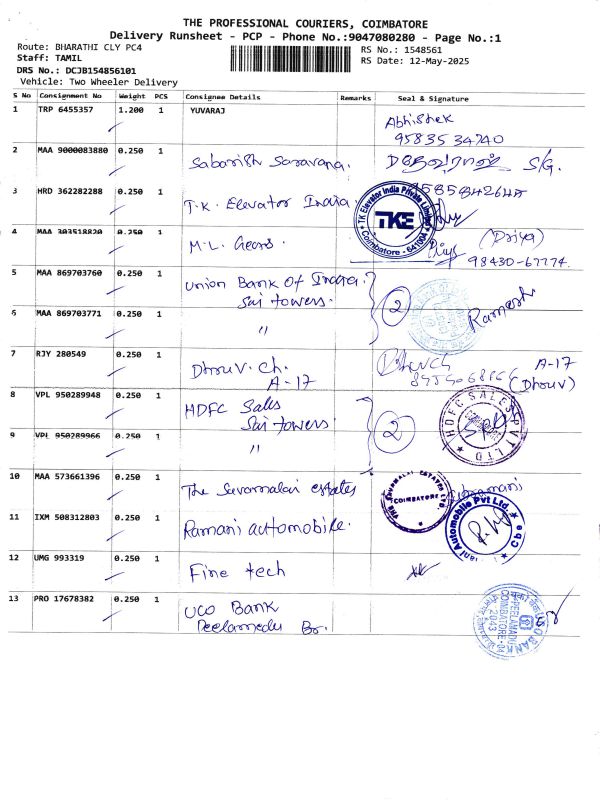 THE PROFESSIONAL COURIERS, COIMBATORE
Delivery Runsheet - PCP - Phone No.:9047080280 - Page No.:1
Route: BHARATHI CLY PC4
RS No.: 1548561
Staff: TAMIL
RS Date: 12-May-2025
DRS No.: DCJB154856101
Vehicle: Two Wheeler Delivery
S No Consignment No Weight PCS Consignee Details Remarks Seal & Signature
1 TRP 6455357 1.200 1 YUVARAJ
Abhishek
95835 34740
2 MAA 9000083880 0.250 1 Sabarish Saravana. S/G.
3 HRD 362282288 0.250 1 T.K. Elevator India
TK Elevator India Private Limited
TKE
Coimbatore - 641004
4 MAA 303518820 0.250 1 M.L. Gears. (Priya)
98430-67774.
5 MAA 869703760 0.250 1 Union Bank Of India
Sai towers.
2 Ramesh
6 MAA 869703771 0.250 1 "
7 RJY 280549 0.250 1 Dhruv. Ch.
A-17
A-17
(Dhruv)
8 VPL 950289948 0.250 1 HDFC Sales
Sai towers
2
HDFC SALES PVT LTD
9 VPL 950289966 0.250 1 "
10 MAA 573661396 0.250 1 The Savamalai estates
COIMBATORE
11 IXM 508312803 0.250 1 Ramani automobile.
Automobile Pvt Ltd.
Cbe
12 UMG 993319 0.250 1 Fine tech
13 PRO 17678382 0.250 1 UCO Bank
Peelamedu Br.
UCO BANK
PEELAMEDU
COIMBATORE-04
2043